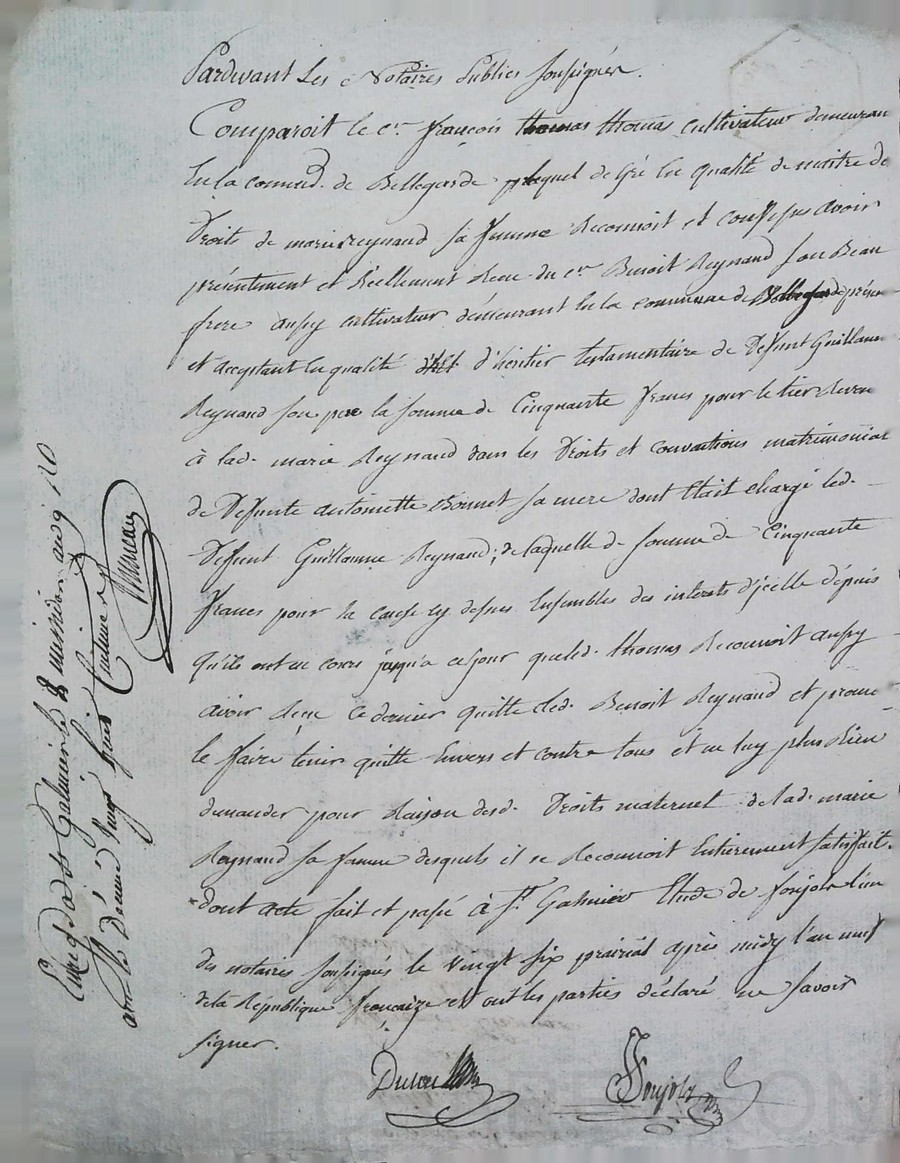 Pardevant Les Notaires Publics soussignés.
Comparoit le cn. françois thomas thomas cultivateur demeuran
En la commd. de Bellegarde lequel de gré En qualité de maitre de
Droits de marie Reynaud sa femme Reconnoit et confesse avoir
présentement et Réellement Receu du cn. Benoit Reynaud son Beau
frere aussy cultivateur démeurant En la commune de Bellegarde présen
et acceptant En qualité d'héritier testamentaire de Deffunt Guillaum
Reynaud son pere la somme de Cinquante francs pour le tier Revenu
à lad. marie Reynaud dans les Droits et convantions matrimonial
de Deffunte antoinette Bonnet sa mere dont Etait chargé led.
Deffunt Guillaume Reynaud; de laquelle de somme de Cinquante
francs pour la cause cy dessus Ensembles des interets d'jcelle dépuis
qu'ils ont eu cours jusqu'a ce jour que led. thomas Reconnoit aussy
avoir Receu ce dernier quitte led. Benoit Reynaud et prome
le faire tenir quitte Envers et contre tous et ne luy plus Rien
demander pour Raison desd. Droits maternel de lad. marie
Reynaud sa femme desquels il se Reconnoit Entierement satisfait.
dont acte fait et passé à St. Galmier Etude de Soujols l'un
des notaires soussignés le vingt six prairial après midy l'an neuf
de la République françaize et ont les parties déclaré ne savoir
signer.
Soujols
Enregt. à St Galmier le 8 messidor an 9